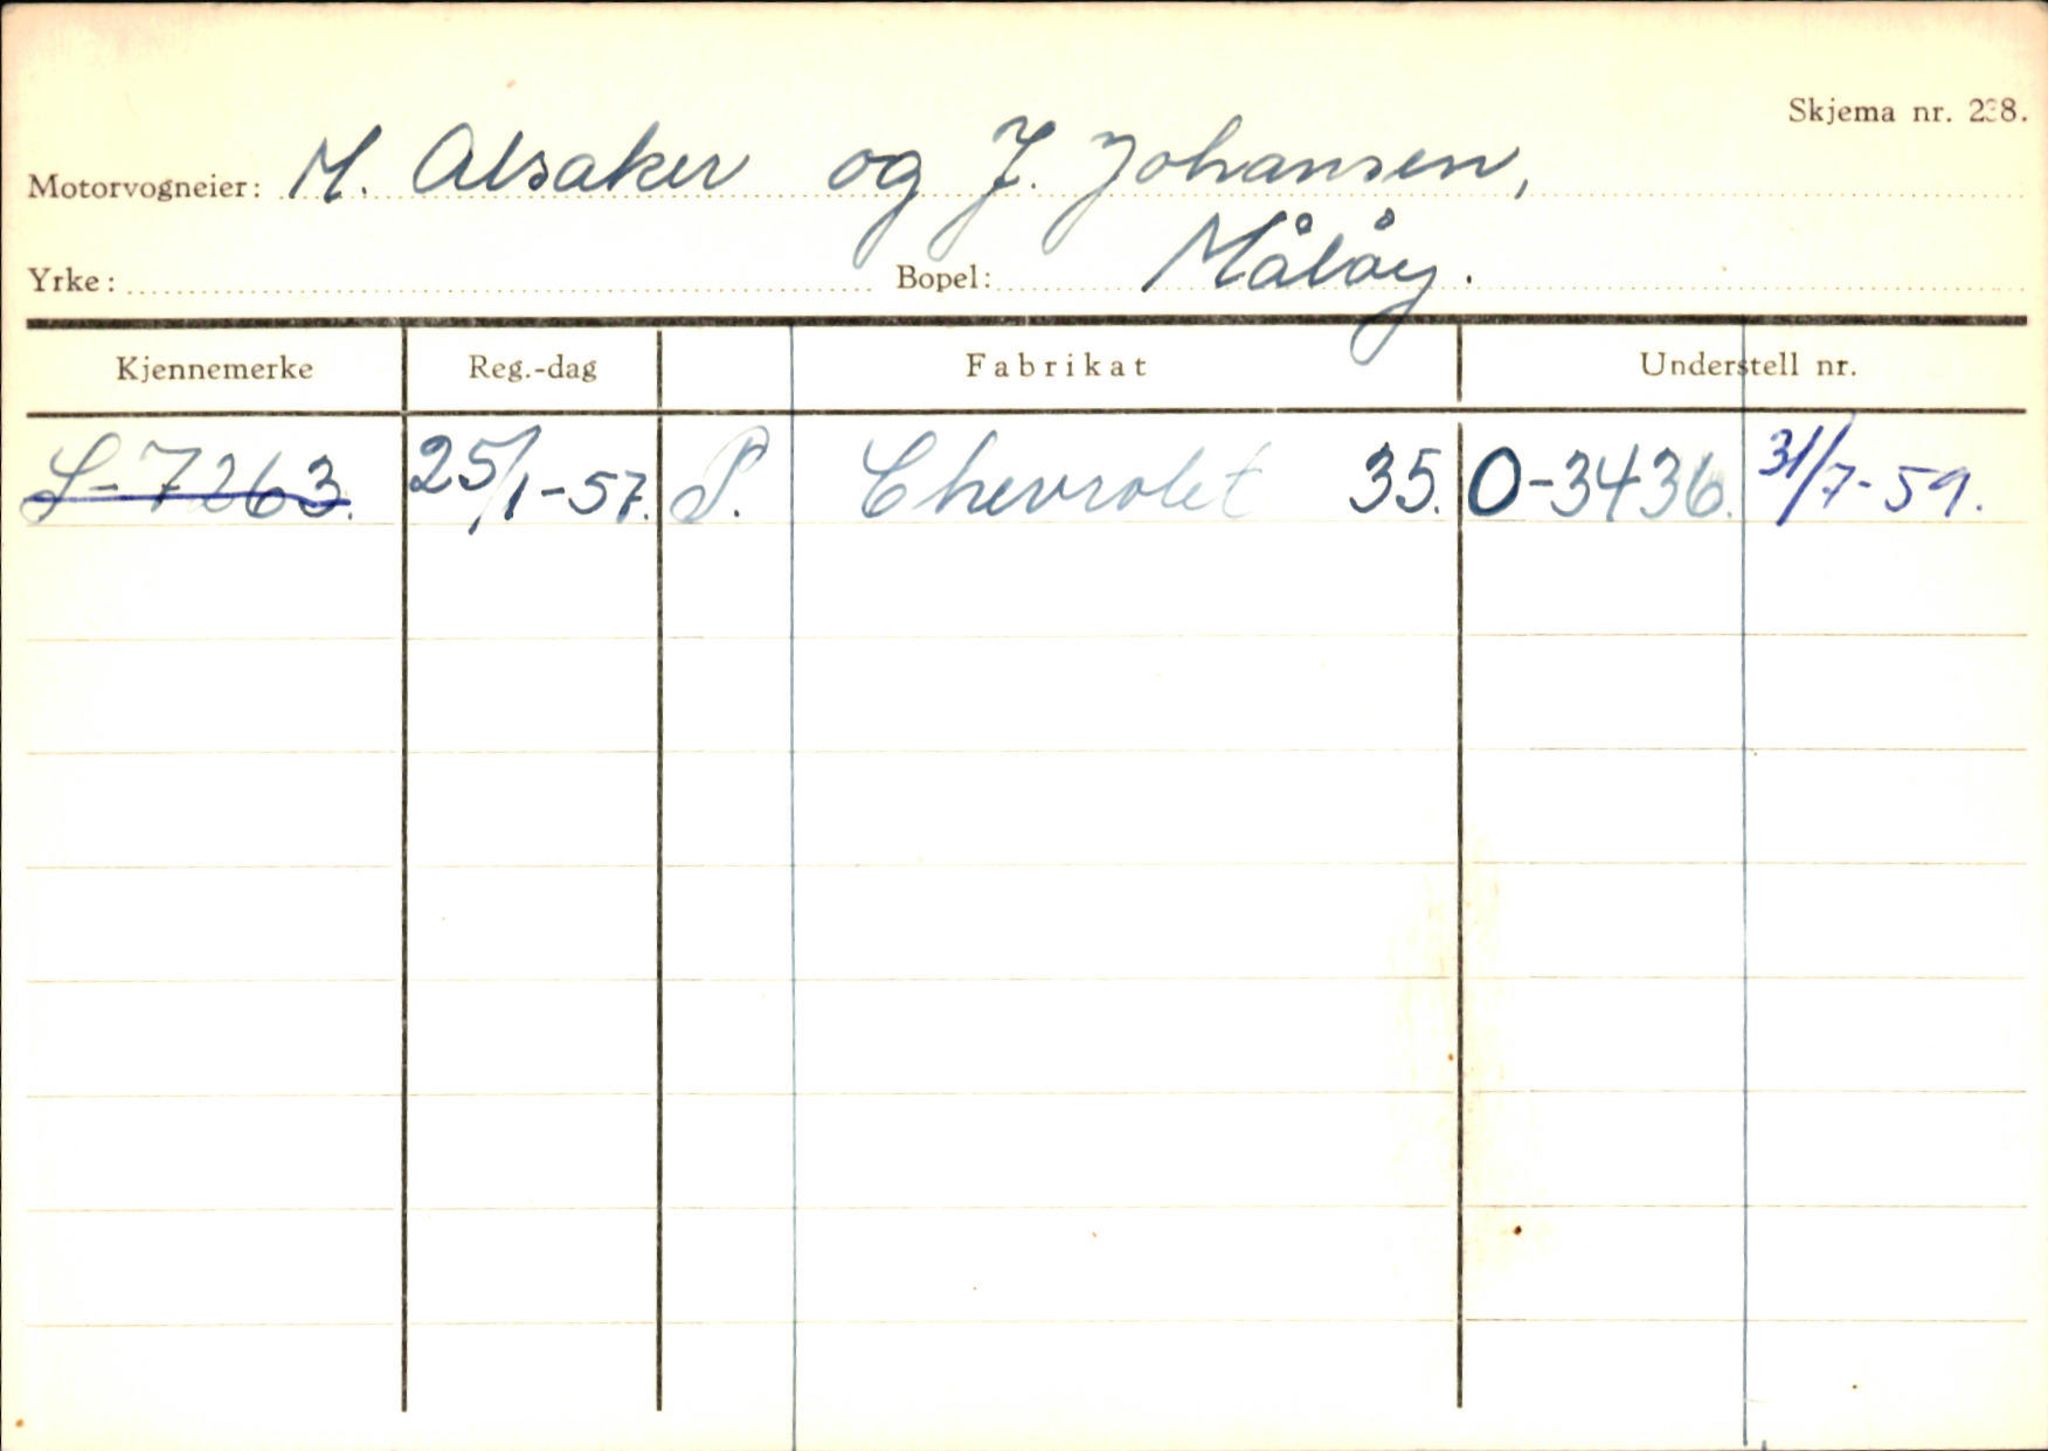 Skjema nr. 238.
Motorvogneier: M. Alsaker og J. Johansen,
Yrke: Bopel: Måløy.
Kjennemerke Reg.-dag Fabrikat Understell nr.
S-7263. 25/1-57. P. Chevrolet 35. O-3436. 31/7-59.